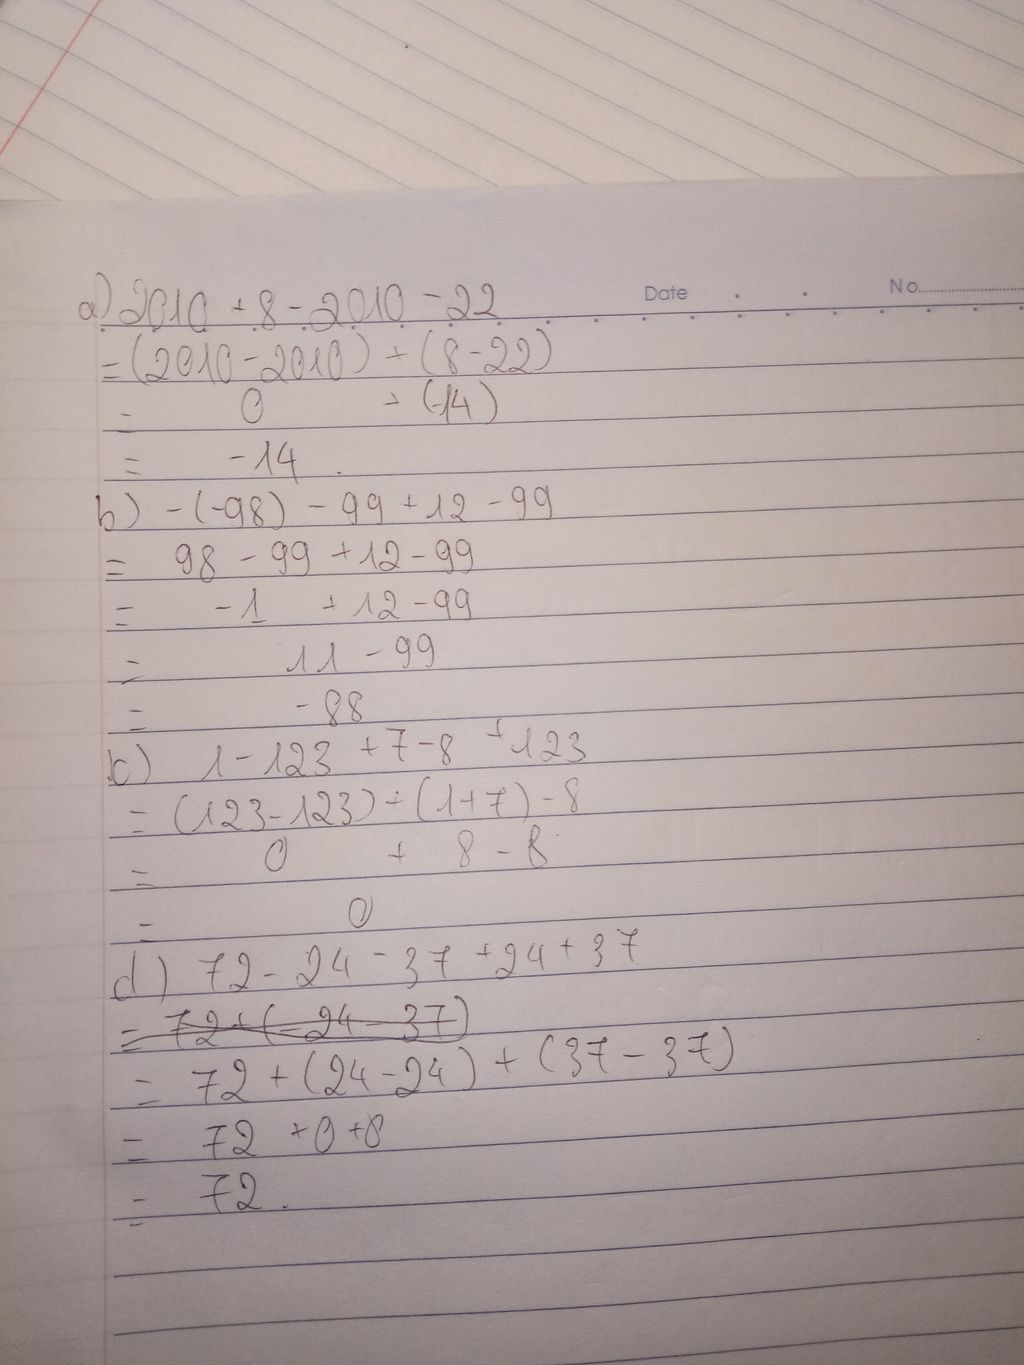 Date . . No
a) 2010 + 8 - 2010 - 22
= (2010 - 2010) + (8 - 22)
= 0 + (-14)
= -14 .
b) -(-98) - 99 + 12 - 99
= 98 - 99 + 12 - 99
= -1 + 12 - 99
= 11 - 99
= -88
c) 1 - 123 + 7 - 8 + 123
= (123 - 123) + (1 + 7) - 8
= 0 + 8 - 8
= 0
d) 72 - 24 - 37 + 24 + 37
= 72 + (- 24 - 37)
= 72 + (24 - 24) + (37 - 37)
= 72 + 0 + 0
= 72 .